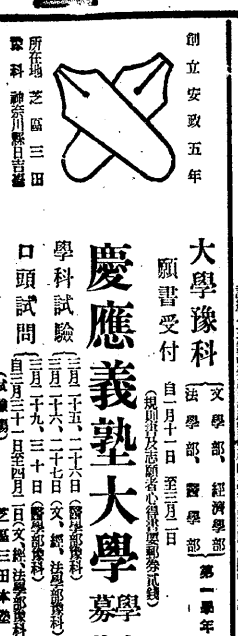 創立安政五年
所在地 芝區三田
豫科 神奈川縣日吉
大學豫科
文學部、經濟學部
法學部、醫學部
第一學年
願書受付
自一月十日至三月二日
(規則書及志願者心得書要郵券貳錢)
慶應義塾大學
學
募
學科試驗
三月二十五、二十六日(醫學部豫科)
三月二十六、二十七日(文、經、法學部豫科)
口頭試問
三月二十九、三十日(醫學部豫科)
自三月三十一日至四月二日(文、經、法學部豫科)
芝區三田本塾